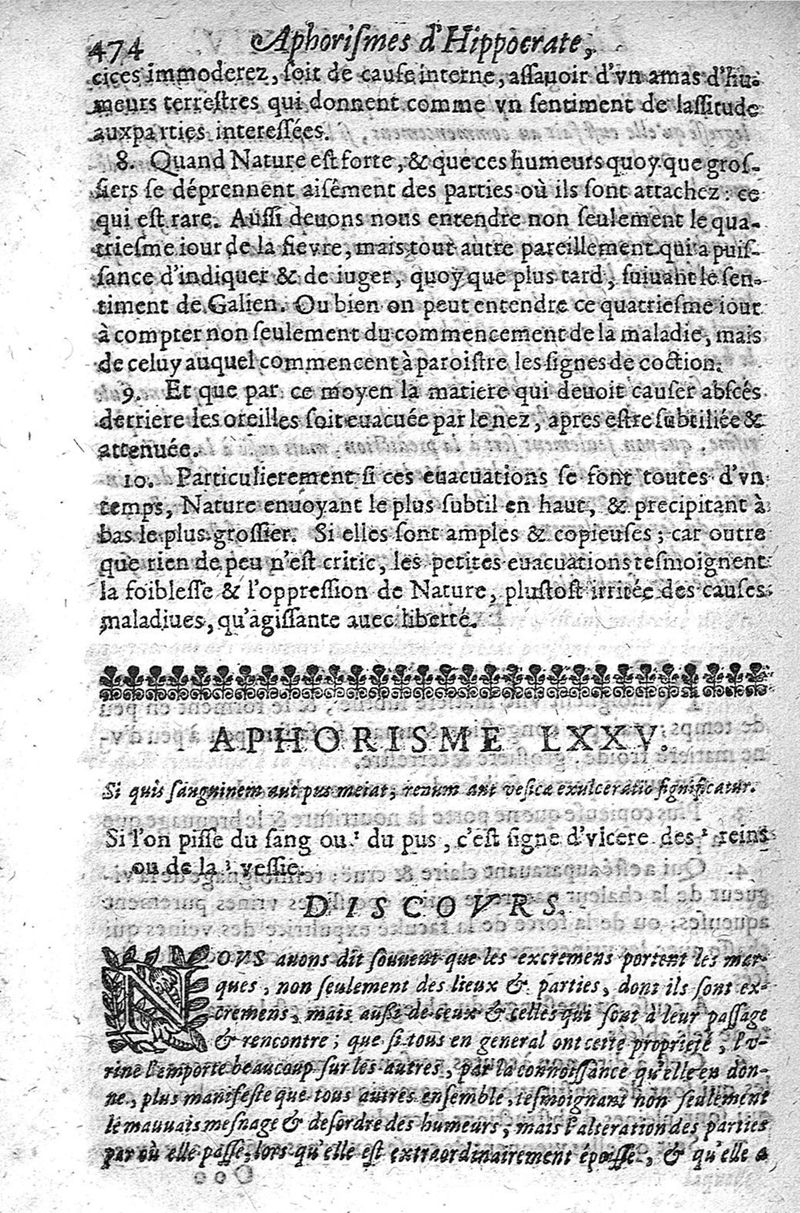 474 Aphoriſmes d'Hippocrate,
cices immoderez, ſoit de cauſe interne, aſſauoir d'vn amas d'hu-
meurs terreſtres qui donnent comme vn ſentiment de laſſitude
aux parties intereſſées.
8. Quand Nature eſt forte, & que ces humeurs quoy que groſ-
ſiers ſe déprennent aiſément des parties où ils ſont attachez : ce
qui eſt rare. Auſſi deuons nous entendre non ſeulement le qua-
trieſme iour de la fievre, mais tout autre pareillement qui a puiſ-
ſance d'indiquer & de iuger, quoy que plus tard, ſuiuant le ſen-
timent de Galien. Ou bien on peut entendre ce quatrieſme iour
à compter non ſeulement du commencement de la maladie, mais
de celuy auquel commencent à paroiſtre les ſignes de coction.
9. Et que par ce moyen la matiere qui deuoit cauſer abſcés
derriere les oreilles ſoit euacuée par le nez, apres eſtre ſubtiliée &
attenuée.
10. Particulierement ſi ces euacuations ſe font toutes d'vn
temps, Nature enuoyant le plus ſubtil en haut, & precipitant à
bas le plus groſſier. Si elles ſont amples & copieuſes ; car outre
que rien de peu n'eſt critic, les petites euacuations teſmoignent
la foibleſſe & l'oppreſſion de Nature, pluſtoſt irritée des cauſes
maladiues, qu'agiſſante auec liberté.
APHORISME LXXV.
Si quis ſanguinem aut pus meiat, renum aut veſica exulceratio ſignificatur.
Si l'on piſſe du ſang ou ¹ du pus, c'eſt ſigne d'vlcere des ² reins
ou de la ³ veſſie.
DISCOVRS.
NOVS auons dit ſouuent que les excremens portent les mar-
ques, non ſeulement des lieux & parties, dont ils ſont ex-
cremens, mais auſſi de ceux & celles qui ſont à leur paſſage
& rencontre ; que ſi tous en general ont cette proprieté, l'v-
rine l'emporte beaucoup ſur les autres, par la connoiſſance qu'elle en don-
ne, plus manifeſte que tous autres enſemble, teſmoignant non ſeulement
le mauuais meſnage & deſordre des humeurs ; mais l'alteration des parties
par où elle paſſe, lors qu'elle eſt extraordinairement épaiſſe, & qu'elle a
Ooo